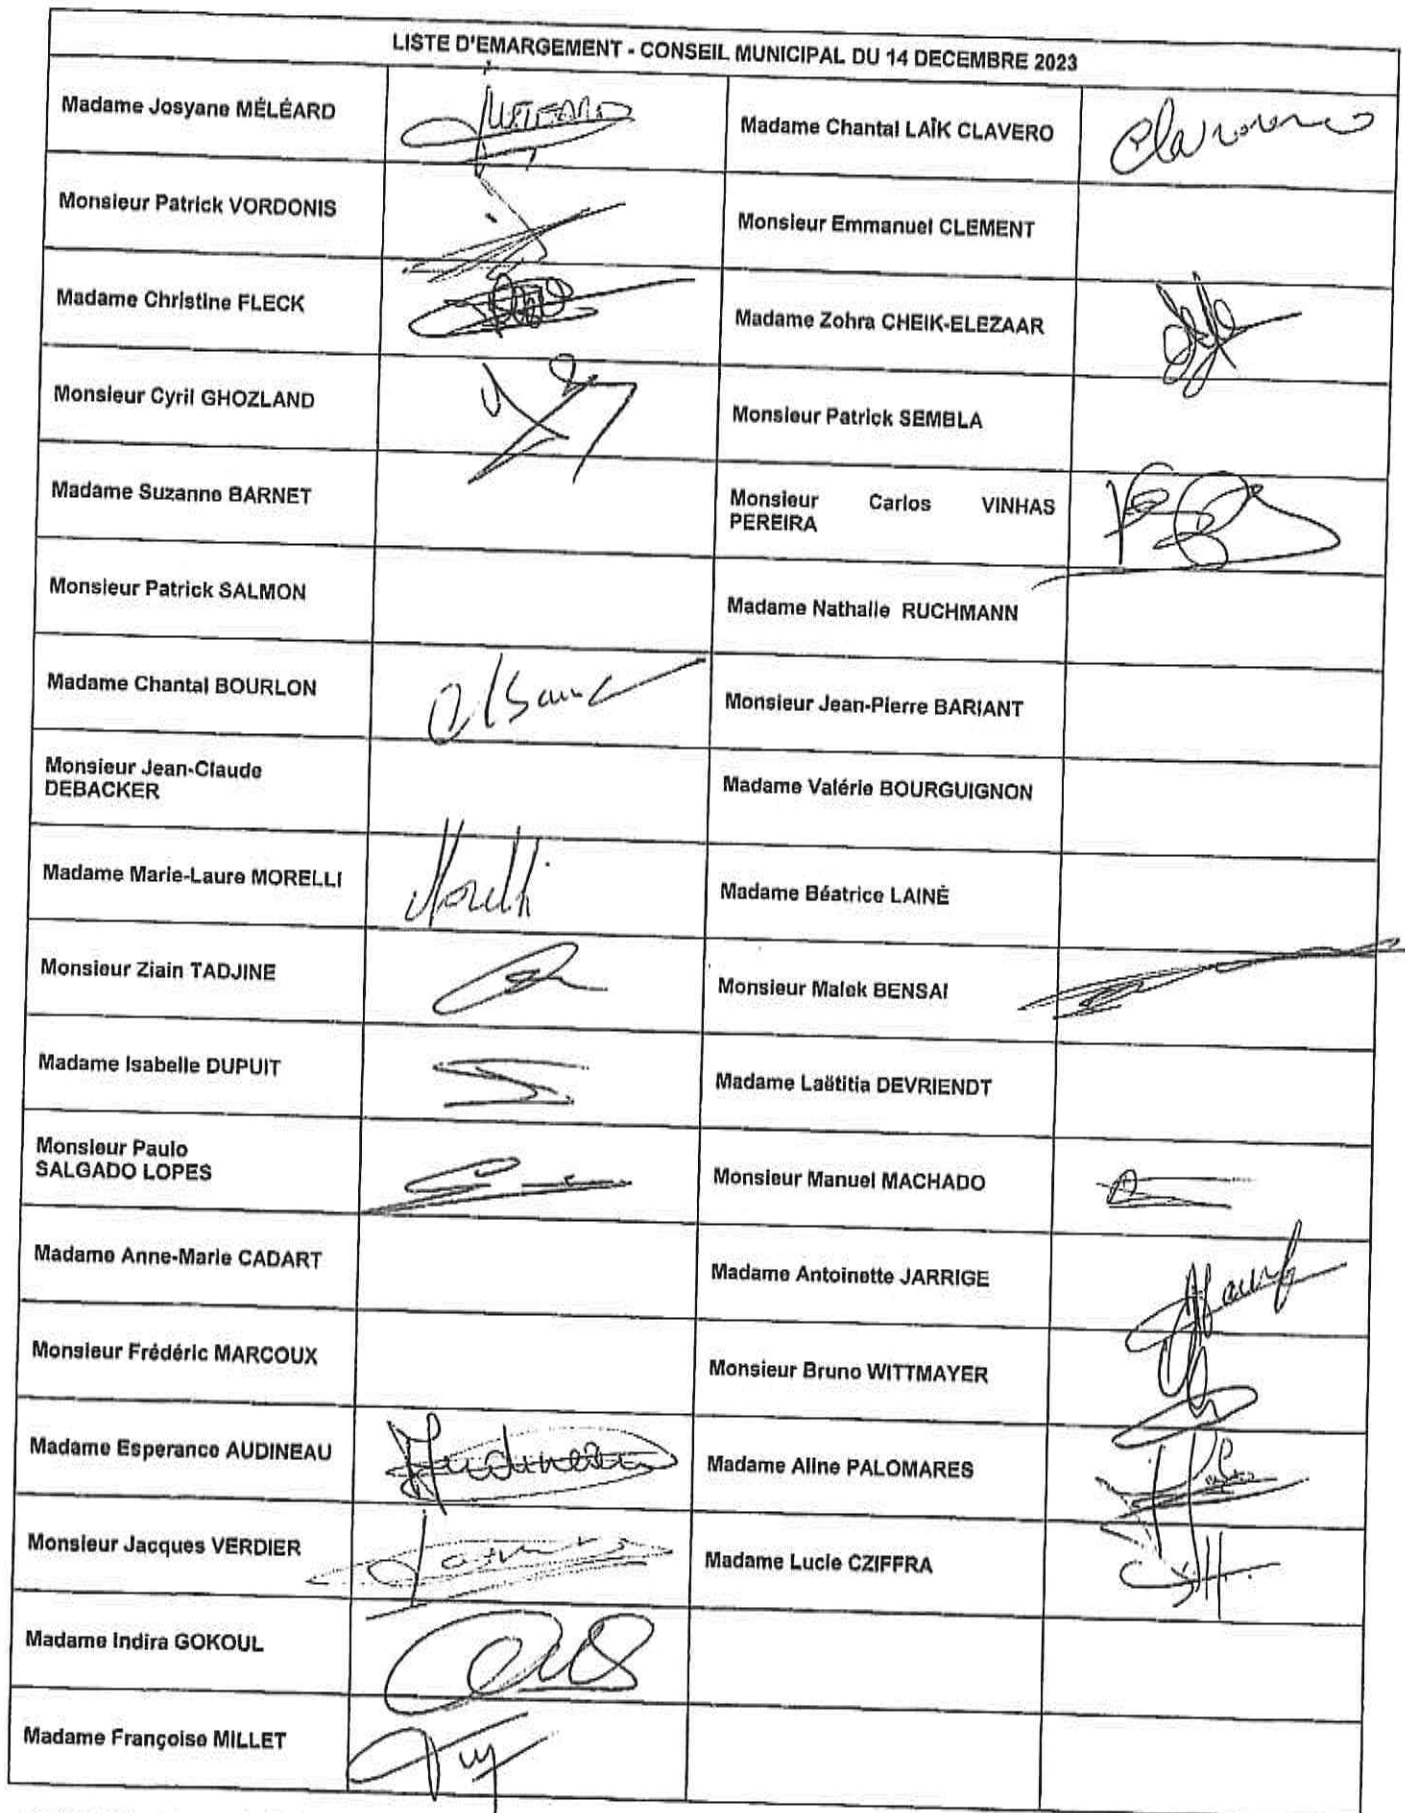 LISTE D'EMARGEMENT - CONSEIL MUNICIPAL DU 14 DECEMBRE 2023
Madame Josyane MÉLÉARD
Madame Chantal LAÏK CLAVERO
Clavero
Monsieur Patrick VORDONIS
Monsieur Emmanuel CLEMENT
Madame Christine FLECK
Madame Zohra CHEIK-ELEZAAR
Monsieur Cyril GHOZLAND
Monsieur Patrick SEMBLA
Madame Suzanne BARNET
Monsieur Carlos VINHAS
PEREIRA
Monsieur Patrick SALMON
Madame Nathalie RUCHMANN
Madame Chantal BOURLON
Monsieur Jean-Pierre BARIANT
Monsieur Jean-Claude
DEBACKER
Madame Valérie BOURGUIGNON
Madame Marie-Laure MORELLI
Morelli
Madame Béatrice LAINÉ
Monsieur Ziain TADJINE
Monsieur Malek BENSAI
Madame Isabelle DUPUIT
Madame Laëtitia DEVRIENDT
Monsieur Paulo
SALGADO LOPES
Monsieur Manuel MACHADO
Madame Anne-Marie CADART
Madame Antoinette JARRIGE
Monsieur Frédéric MARCOUX
Monsieur Bruno WITTMAYER
Madame Esperance AUDINEAU
Audineau
Madame Aline PALOMARES
Monsieur Jacques VERDIER
Madame Lucie CZIFFRA
Madame Indira GOKOUL
Madame Françoise MILLET